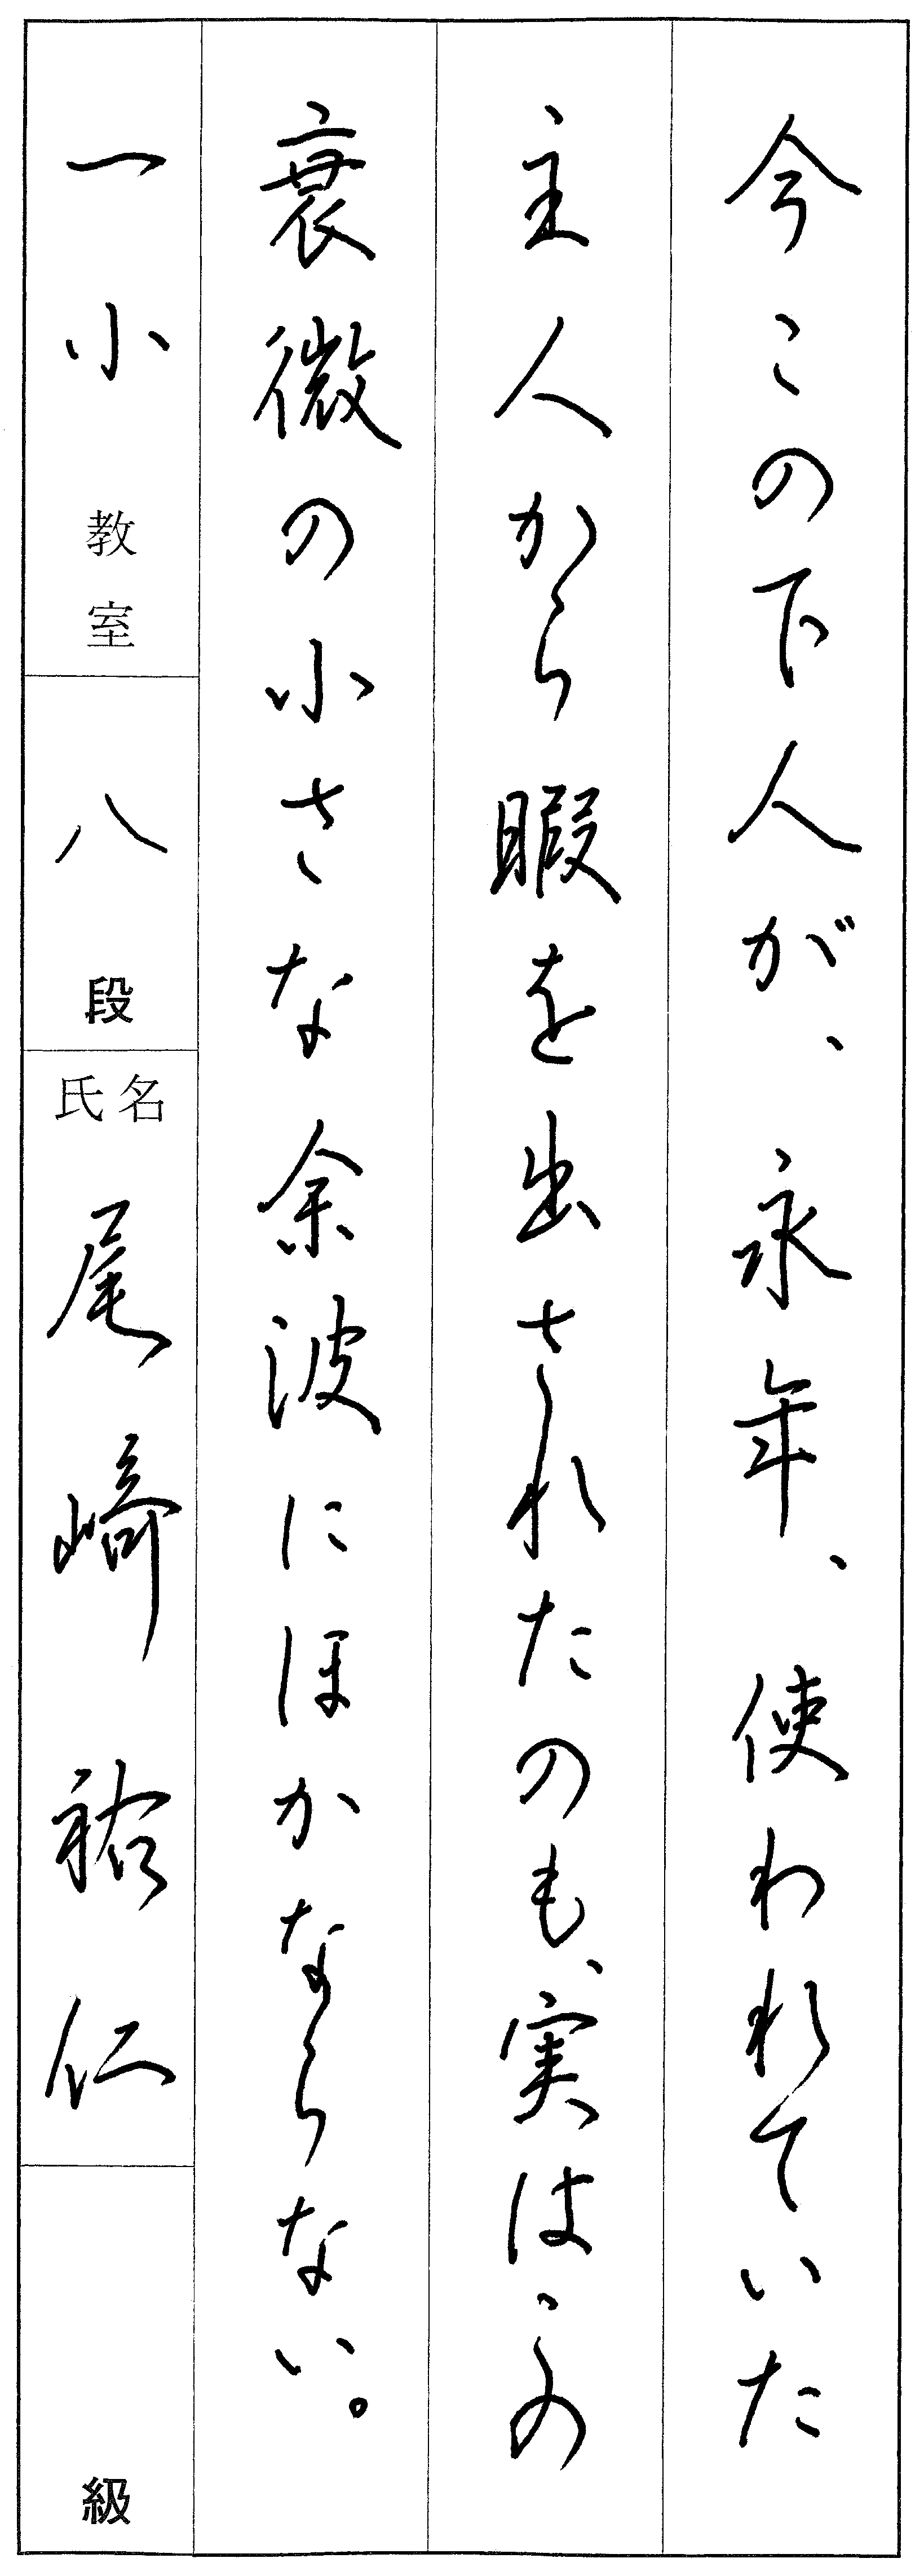 今この下人が、永年、使われていた
主人から暇を出されたのも、実はこの
衰微の小さな余波にほかならない。
一小教室
八段
氏名
尾崎祐仁
級